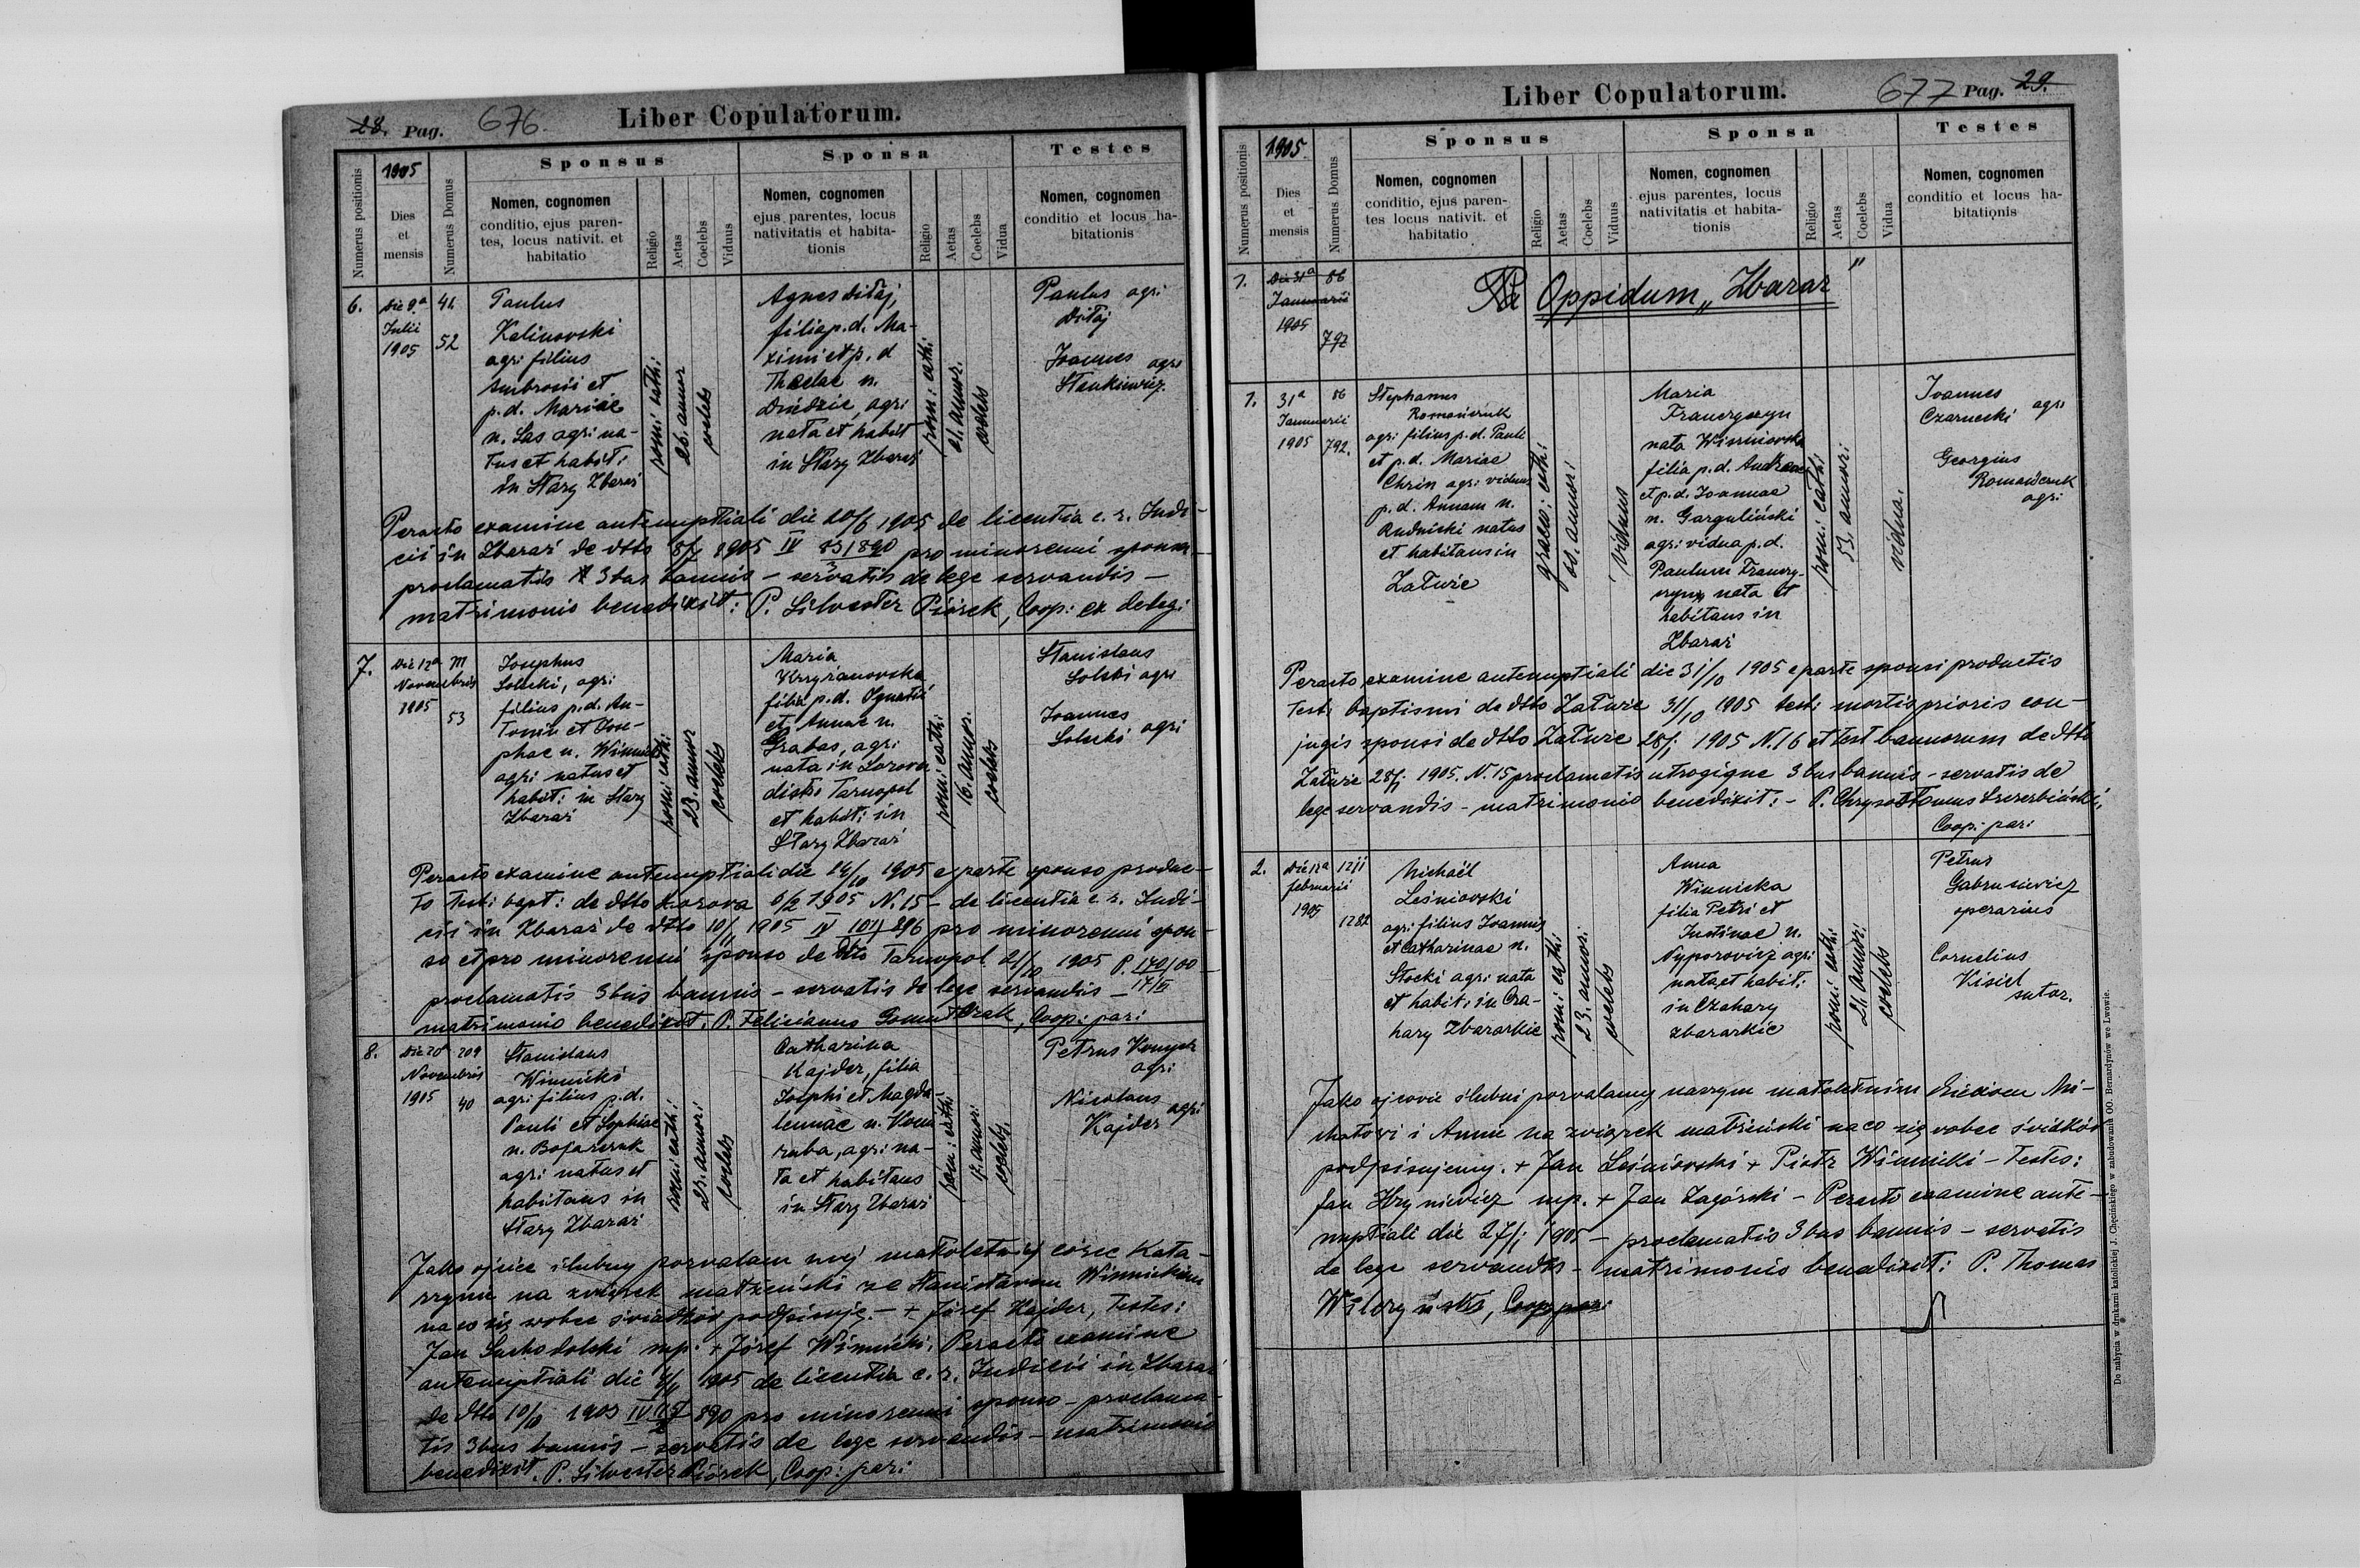 28. Pag. 676.
Liber Copulatorum.
Numerus positionis
1905
Dies
et
mensis
Numerus Domus
Sponsus
Nomen, cognomen
conditio, ejus paren-
tes, locus nativit. et
habitatio
Religio
Aetas
Coelebs
Viduus
Sponsa
Nomen, cognomen
ejus parentes, locus
nativitatis et habita-
tionis
Religio
Aetas
Coelebs
Vidua
Testes
Nomen, cognomen
conditio et locus ha-
bitationis
6.
Die 9a
Julii
1905
41
52
Paulus
Kalinovski
agri filius
Ambrosii et
p. d. Mariae
n. Sas agri na-
tus et habit:
in Stary Zbaraż
rom: cath:
26. annor
coelebs
Agnes Ditaj,
filia p. d. Ma-
ximi et p. d
Theclae n.
agri
nata et habit
in Stary Zbaraż
rom: cath:
21. annor.
coelebs
Paulus agri
Ditaj
Joannes agri
Stankiewicz.
Peracto examine antenuptiali die 20/6 1905 de licentia c. r. Judi-
cii in Zbaraż de dtto 8/7 1905 IV 83/890 pro minorenni sponsa
proclamatis 3bus bannis – servatis de lege servandis –
matrimonio benedixit: P. Silvester Piórek, Coop: ex deleg:
7.
Die 12a
Novembris
1905
111
53
Josephus
Solecki, agri
filius p. d. An-
tonii et Jose-
phae n. Winnicki
agri natus et
habit: in Stary
Zbaraż
rom: cath:
23. annor
coelebs
Maria
Krzyżanovska
filia p. d. Ignatii
et Annae n.
Grabas, agri
nata in Zorova
distr: Tarnopol
et habit: in
Stary Zbaraż
rom: cath:
16. annor.
coelebs
Stanislaus
Solski agri
Joannes
Solecki agri
Peracto examine antenuptiali die 14/10 1905 e parte sponso produc-
to test: bapt: de dtto 6/2 1905 N. 15 – de licentia c. r. Judi-
cii in Zbaraż de dtto 10/11 1905 IV 896 pro minorenni spon-
so et pro minorenni sponso de dtto Tarnopol 21/10 1905 P. 170/00
proclamatis 3bus bannis – servatis de lege servandis –
matrimonio benedixit: P. Felicianus Coop: par:
8.
Die 20a
Novembris
1905
209
40
Stanislaus
Winnicki
agri filius p. d.
Pauli et Sophiae
n. Bojarczuk
agri natus et
habitans in
Stary Zbaraż
rom: cath:
23. annor:
coelebs
Catharina
Kajder, filia
Josephi et Magda-
lennae n.
agri na-
ta et habitans
in Stary Zbaraż
rom: cath:
17. annor:
coelebs.
Petrus
agri
Nicolaus
Kajder agri
Jako ojciec ślubny pozvalam mej małoletniej córce Kata-
rzynie na związek małżeński ze Stanisłavem Winnickim
na co się wobec świadków podpisuję. – + Józef Kajder, Testes:
Jan Suchodolski mp. + Józef Winnicki. Peracto examine
antenuptiali die 1905 de licentia c. r. Judicii in Zbaraż
de dtto 10/11 1905 IV 890 pro minorenni sponso – proclama-
tis 3bus bannis – servatis de lege servandis – matrimonio
benedixit. P. Silvester Piórek, Coop: par:
Liber Copulatorum.
677 Pag. 29.
Numerus positionis
1905
Dies
et
mensis
Numerus Domus
Sponsus
Nomen, cognomen
conditio, ejus paren-
tes locus nativit. et
habitatio
Religio
Aetas
Coelebs
Viduus
Sponsa
Nomen, cognomen
ejus parentes, locus
nativitatis et habita-
tionis
Religio
Aetas
Coelebs
Vidua
Testes
Nomen, cognomen
conditio et locus ha-
bitationis
1.
Die 31a
Januarii
1905
86
792
Oppidum „Zbaraż"
1.
31a
Januarii
1905
86
792.
Stephanus
Romańczuk
agri filius p. d. Pauli
et p. d. Mariae
Chrin agri viduus
p. d. Annam n.
Rudnicki natus
et habitans in
Załuże
graeco: cath:
60. annor:
viduus
Maria
Franczyszyn
nata Wisniovska
filia p. d. Andreae
et p. d. Joannae
n. Garguliński
agri vidua p. d.
Paulum Franczy-
szyn nata et
habitans in
Zbaraż
rom: cath:
53. annor:
vidua.
Joannes
Czarnecki agri
Georgius
Romańczuk
agri
Peracto examine antenuptiali die 31/10 1905 e parte sponsi productis
test: baptismi de dtto Załuże 31/10 1905 test: mortis prioris con-
jugis sponsi de dtto Załuże 28/1 1905 N. 16 et test bannorum de dtto
Załuże 28/1 1905. N. 15 proclamatis utrogique 3bus bannis – servatis de
lege servandis – matrimonio benedixit: – P. Chrysostomus Szczerbiński,
Coop: par:
2.
Die 12a
februarii
1905
1211
1282
Michaël
Leśniovski
agri filius Joannis
et Catharinae n.
Stocki agri nata
et habit: in Cza-
hary Zbarazkie
rom: cath:
23. annor:
coelebs
Anna
Winnicka
filia Petri et
Justinae n.
Nyporovicz agri
nata et habit:
in Czahary
zbarazkie
rom: cath:
21. annor:
coelebs
Petrus
Gabrusievicz
operarius
Cornelius
Kisiel
sutor.
Jako ojcovie ślubni pozvalamy naszym małoletnim dzieciom Mi-
chałovi i Annie na związek małżeński na co się vobec śviadków
podpisujemy. + Jan Leśniovski + Piotr Winnicki – Testes:
Jan Hryniewicz mp. + Jan Zagórski – Peracto examine ante-
nuptiali die 27/1 1905 – proclamatis 3bus bannis – servatis
de lege servandis – matrimonio benedixit: P. Thomas
Wilczyński, Coop: par:
Do nabycia w drukarni katolickiej J. Chęcińskiego w zabudowaniu OO. Bernardynów we Lwowie.